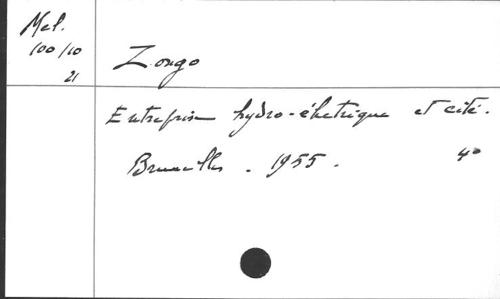 Mel.
100/10
21
Zongo
Entreprise hydro-électrique et cité.
Bruxelles. 1955. 4°